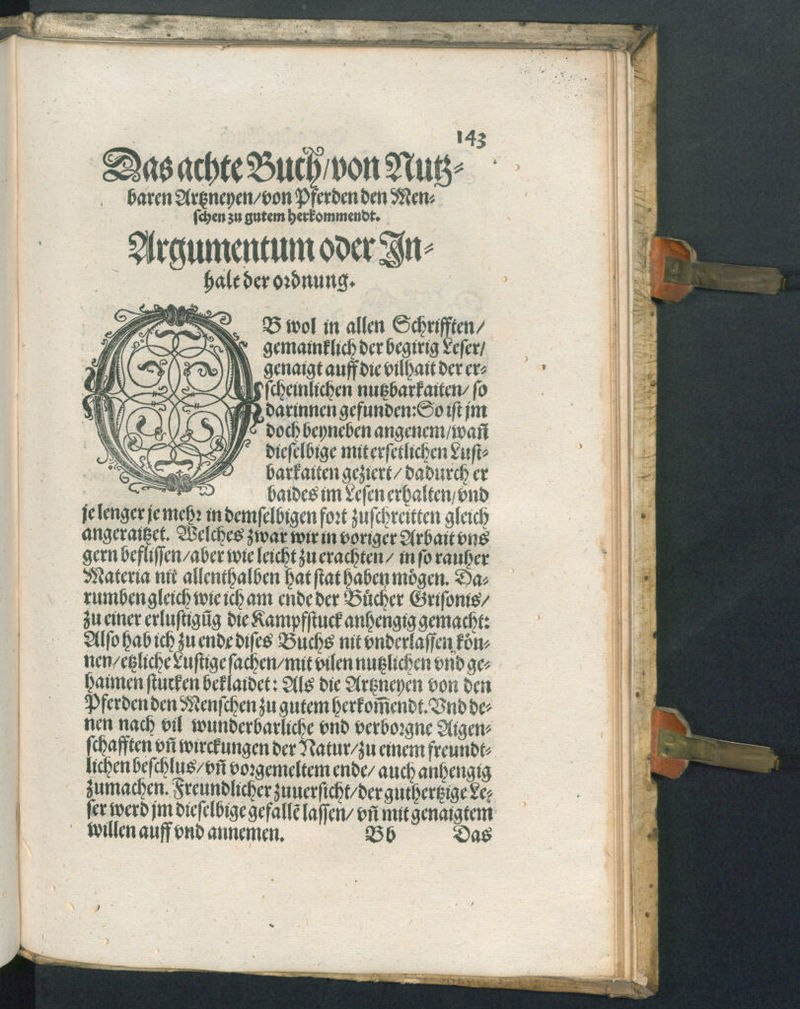 143
Das achte Buch/von Nutz-
baren Artzneyen/von Pferden den Men-
schen zu gutem herkommendt.
Argumentum oder In-
halt der ordnung.
OB wol in allen Schrifften/
gemainklich der begirig Leser/
genaigt auff die vilhait der er-
scheinlichen nutzbarkaiten/ so
darinnen gefunden: So ist jm
doch beyneben angenem/wañ
dieselbige mit ersetlichen Lust-
barkaiten geziert/ dadurch er
baides im Lesen erhalten/vnd
je lenger je mehr in demselbigen fort zuschreitten gleich
angeraitzet. Welches zwar wir in voriger Arbait vns
gern beflissen/aber wie leicht zu erachten/ in so rauher
Materia nit allenthalben hat stat haben mögen. Da-
rumben gleich wie ich am ende der Bücher Grisonis/
zu einer erlustigũg die Kampfstuck anhengig gemacht:
Also hab ich zu ende dises Buchs nit vnderlassen kön-
nen/etzliche Lustige sachen/mit vilen nutzlichen vnd ge-
haimen stucken beklaidet: Als die Artzneyen von den
Pferden den Menschen zu gutem herkom̄endt. Vnd de-
nen nach vil wunderbarliche vnd verborgne Aigen-
schafften vñ wirckungen der Natur/zu einem freundt-
lichen beschlus/vñ vorgemeltem ende/ auch anhengig
zumachen. Freundlicher zuuersicht/der guthertzige Le-
ser werd jm dieselbige gefallẽ lassen/ vñ mit genaigtem
willen auff vnd annemen. Bb Das